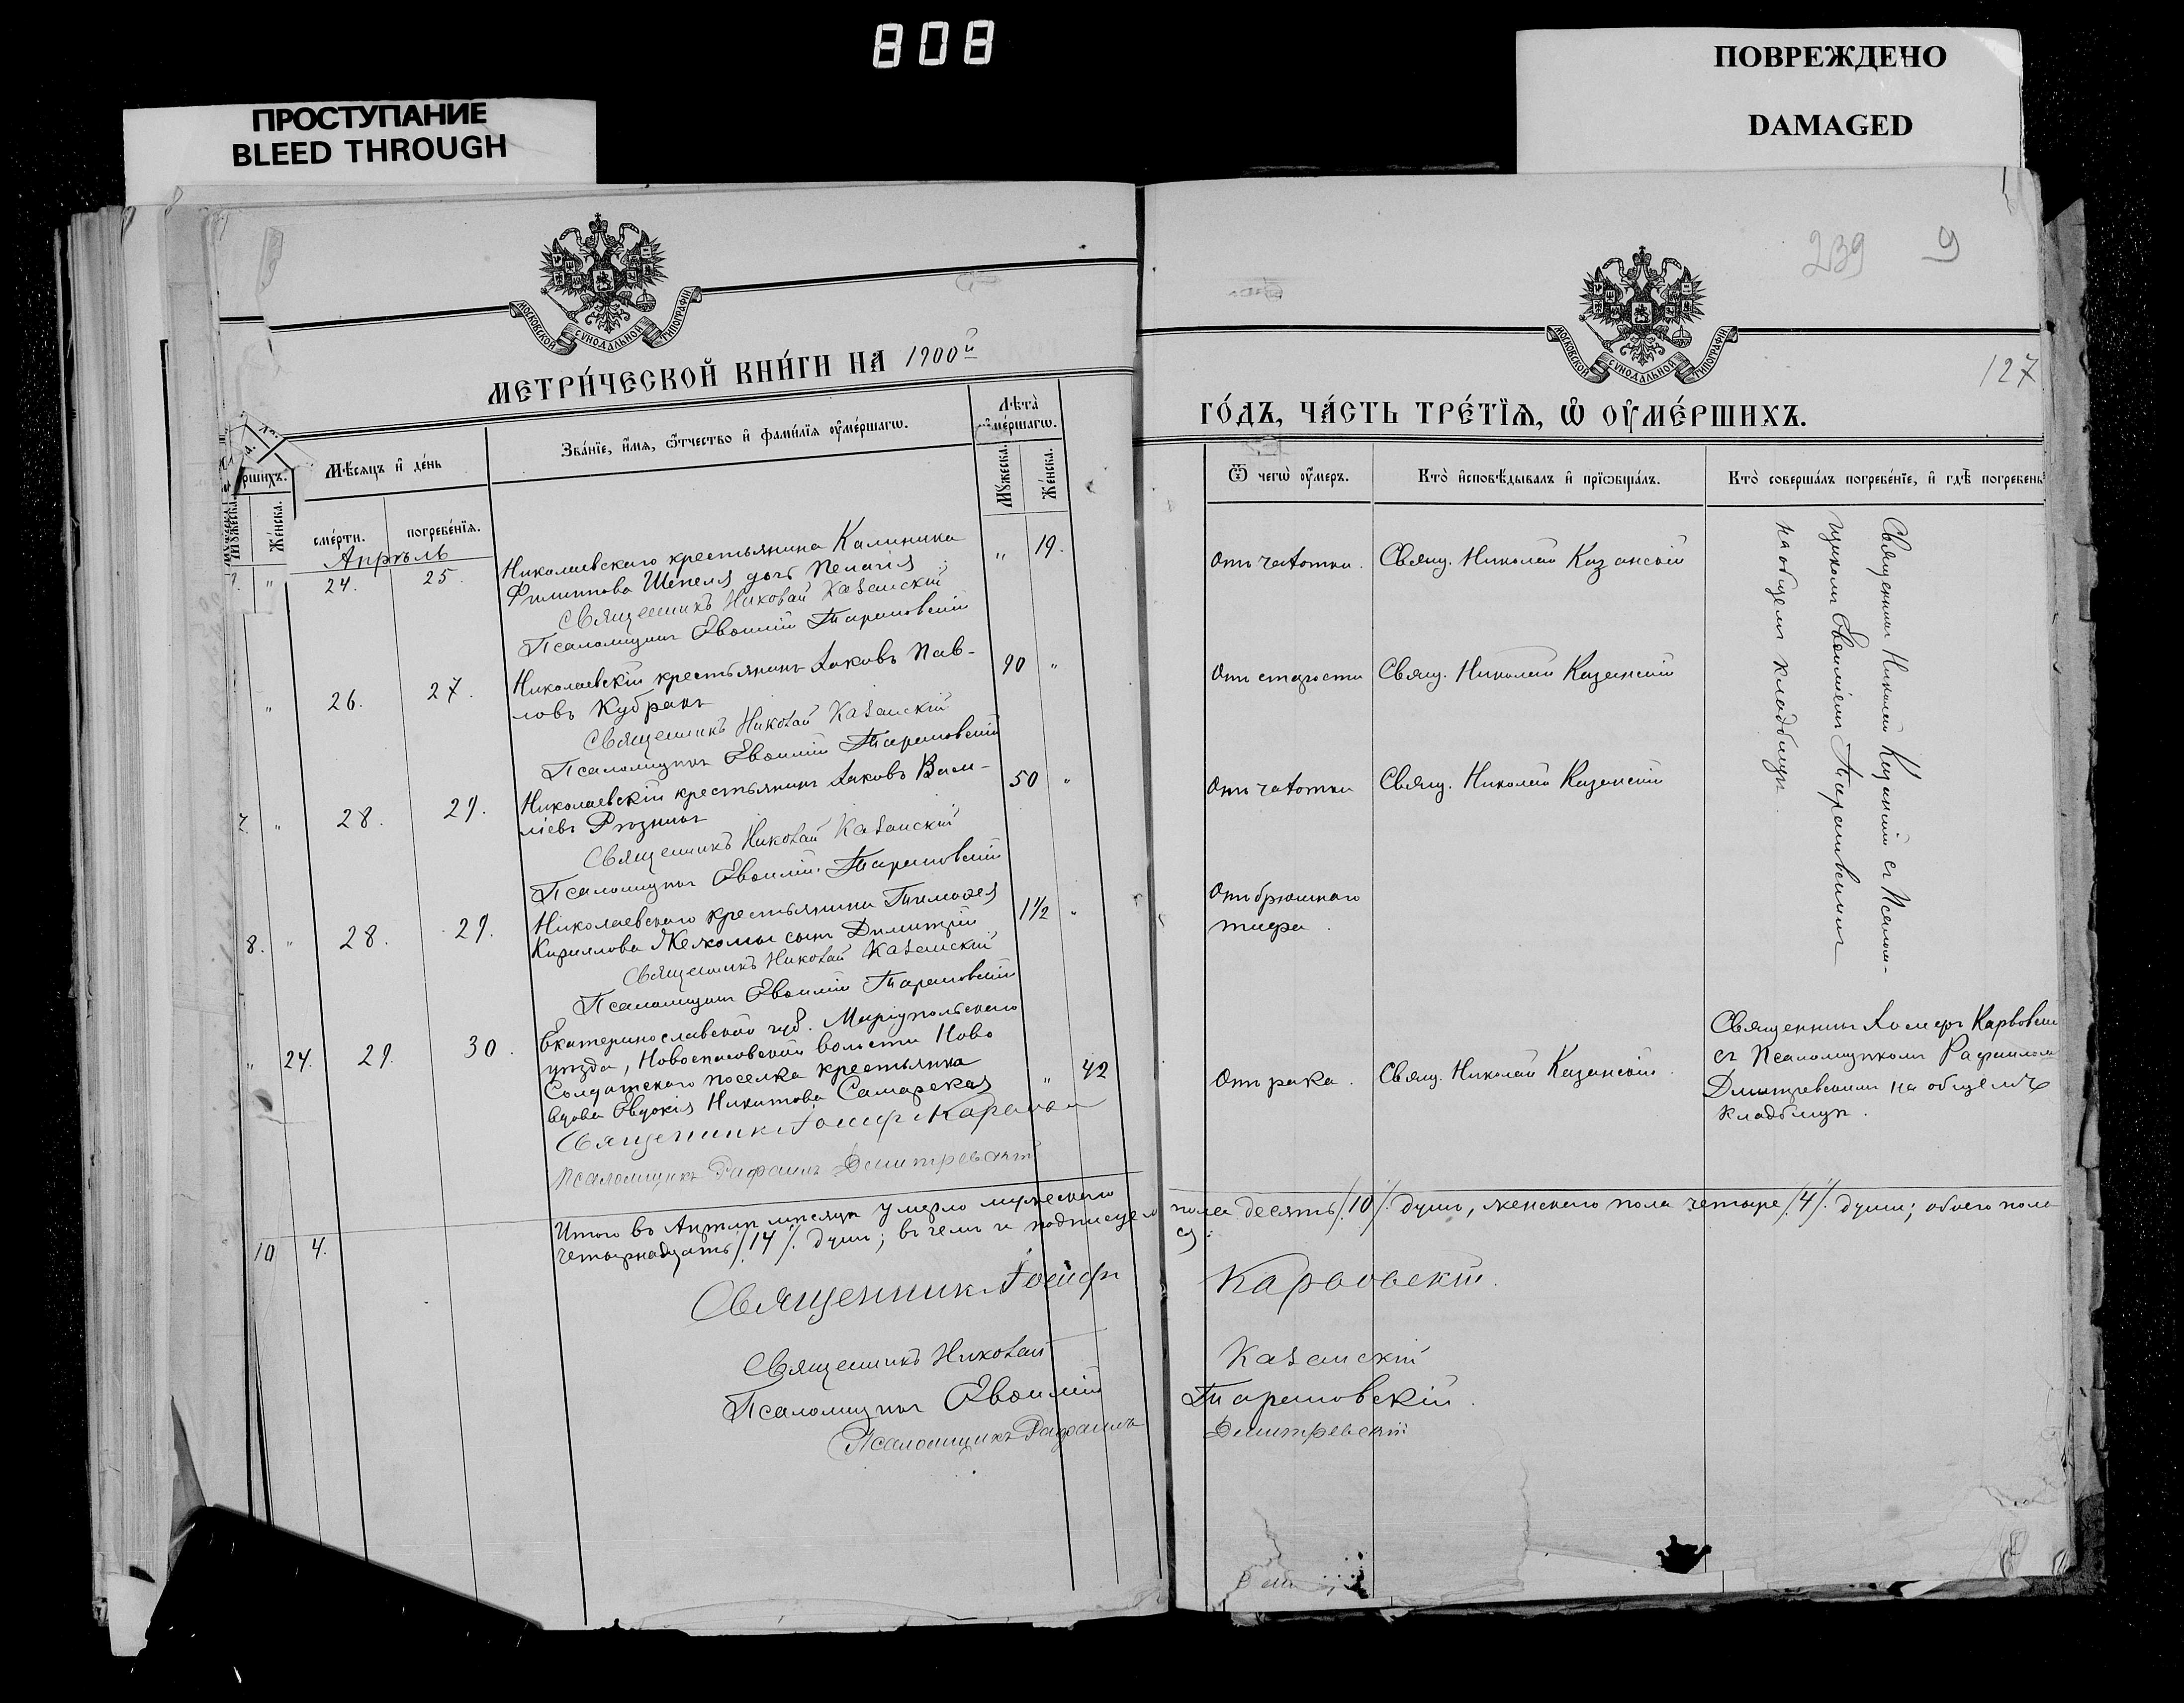 808
ПРОСТУПАНИЕ
BLEED THROUGH
ПОВРЕЖДЕНО
DAMAGED
239 9
127
МОСКОВСКОЙ СѴНОДАЛЬНОЙ ТИПОГРАФІИ
МЕТРИ́ЧЕСКОЙ КНИ́ГИ НА 1900й
МОСКОВСКОЙ СѴНОДАЛЬНОЙ ТИПОГРАФІИ
ГО́ДЪ, ЧА́СТЬ ТРЕ́ТЇѦ, Ѡ҆ ОУ҆МЕ́РШИХЪ.
ршихъ.
Мꙋ́жеска.
Же́нска.
Мѣ́сѧцъ и҆ де́нь
сме́рти.
погребе́нїѧ.
Зва́нїе, и҆́мѧ, ѻ҆́тчество и҆ фами́лїѧ оу҆ме́ршагѡ.
Лѣ́та̀
оу҆ме́ршагѡ.
Мꙋ́жеска.
Же́нска.
Ѿ чегѡ̀ оу҆́меръ.
Кто̀ и҆сповѣ́дывалъ и҆ прїѡбща́лъ.
Кто̀ соверша́лъ погребе́нїе, и҆ гдѣ̀ погребены
Апрѣль
" 24. 25.
Николаевскаго крестьянина Калиника
Филиппова Шепеля дочь Пелагія
" 19.
Священникъ Николай Казанскій
Псаломщикъ Евѳимій Тарановскій
Отъ чахотки.
Свящ. Николай Казанскій
" 26. 27.
Николаевскій крестьянинъ Іаковъ Пав-
ловъ Кубракъ
90 "
Священникъ Николай Казанскій
Псаломщикъ Евѳимій Тарановскій
Отъ старости
Свящ. Николай Казанскій
7. " 28. 29.
Николаевскій крестьянинъ Іаковъ Васи-
ліевъ Рѣзникъ
50 "
Священникъ Николай Казанскій
Псаломщикъ Евѳимій Тарановскій
Отъ чахотки
Свящ. Николай Казанскій
8. " 28. 29.
Николаевскаго крестьянина Тимоѳея
Кириллова сынъ Димитрій
1½ "
Священникъ Николай Казанскій
Псаломщикъ Евѳимій Тарановскій
Отъ брюшного
тифа.
Священникъ Николай Казанскій съ Псалом-
щикомъ Евѳиміемъ Тарановскимъ
на общемъ кладбищѣ.
" 24. 29. 30.
Екатеринославской губ. Маріупольскаго
уѣзда, Новоспасовской волости Ново
Солдатскаго поселка крестьянка
вдова Евдокія Никитова Самарская
" 42
Священникъ Іосифъ Карвовскій
Псаломщикъ Рафаилъ Дмитревскій
Отъ рака.
Свящ. Николай Казанскій.
Священникъ Іосифъ Карвовскій
съ Псаломщикомъ Рафаиломъ
Дмитревскимъ на общемъ
кладбищѣ.
10 4.
Итого въ Апрѣлѣ мѣсяцѣ умерло мужескаго пола десять /10/. душъ, женскаго пола четыре /4/. души; обоего пола
четырнадцать /14/. душъ; въ чемъ и подписуемся:
Священникъ Іосифъ Карвовскій.
Священникъ Николай Казанскій
Псаломщикъ Евѳимій Тарановскій.
Псаломщикъ Рафаилъ Дмитревскій